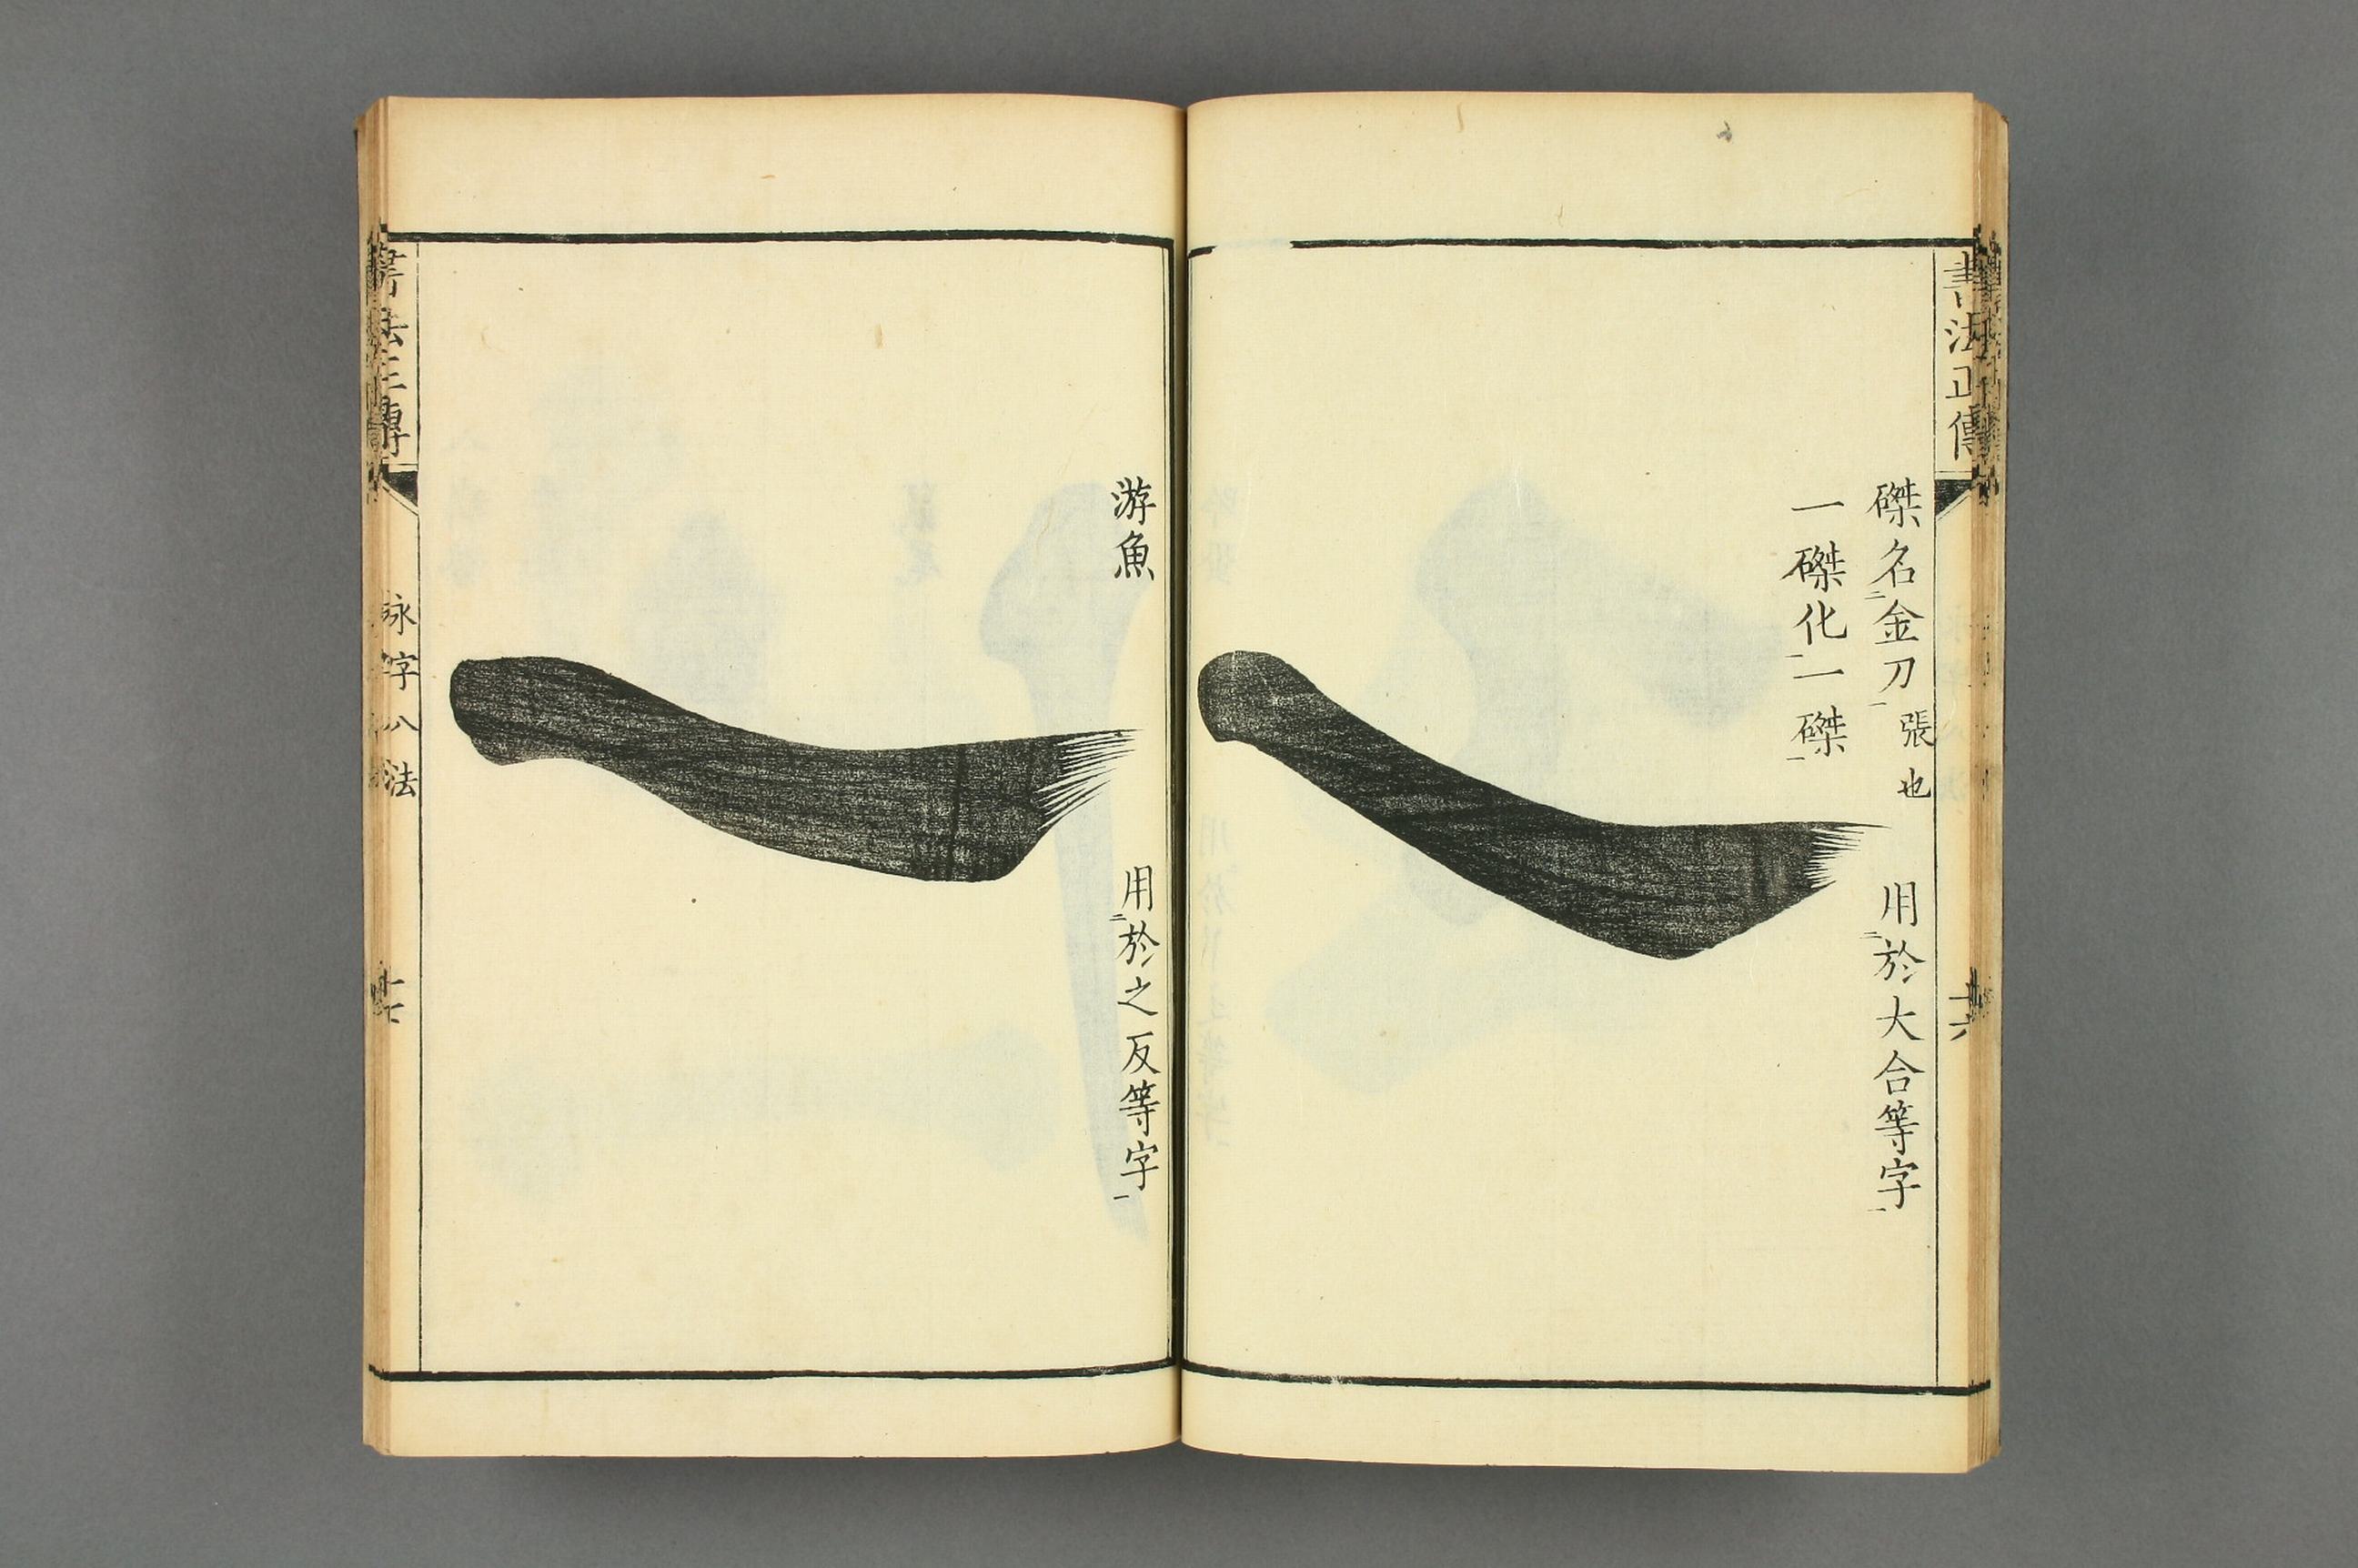 書法正傳
磔名金刀
張也
用於大合等字
一磔化一磔
游魚
用於之反等字
書法正傳
永字八法